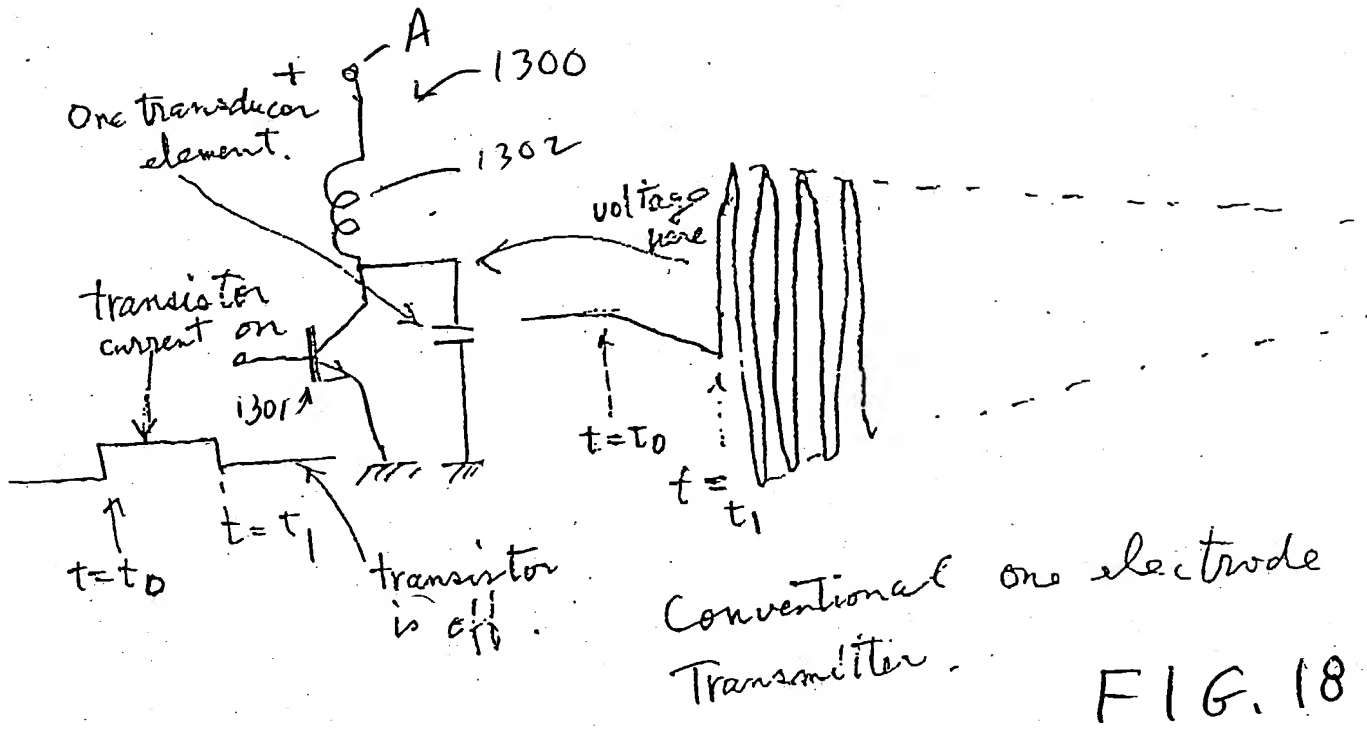 A
+
1300
One transducer
element.
1302
voltage
here
transistor
current on
1301
t=t0
t=t1
t=t0
t=
t1
transistor
is off.
Conventional one electrode
Transmitter.
FIG. 18